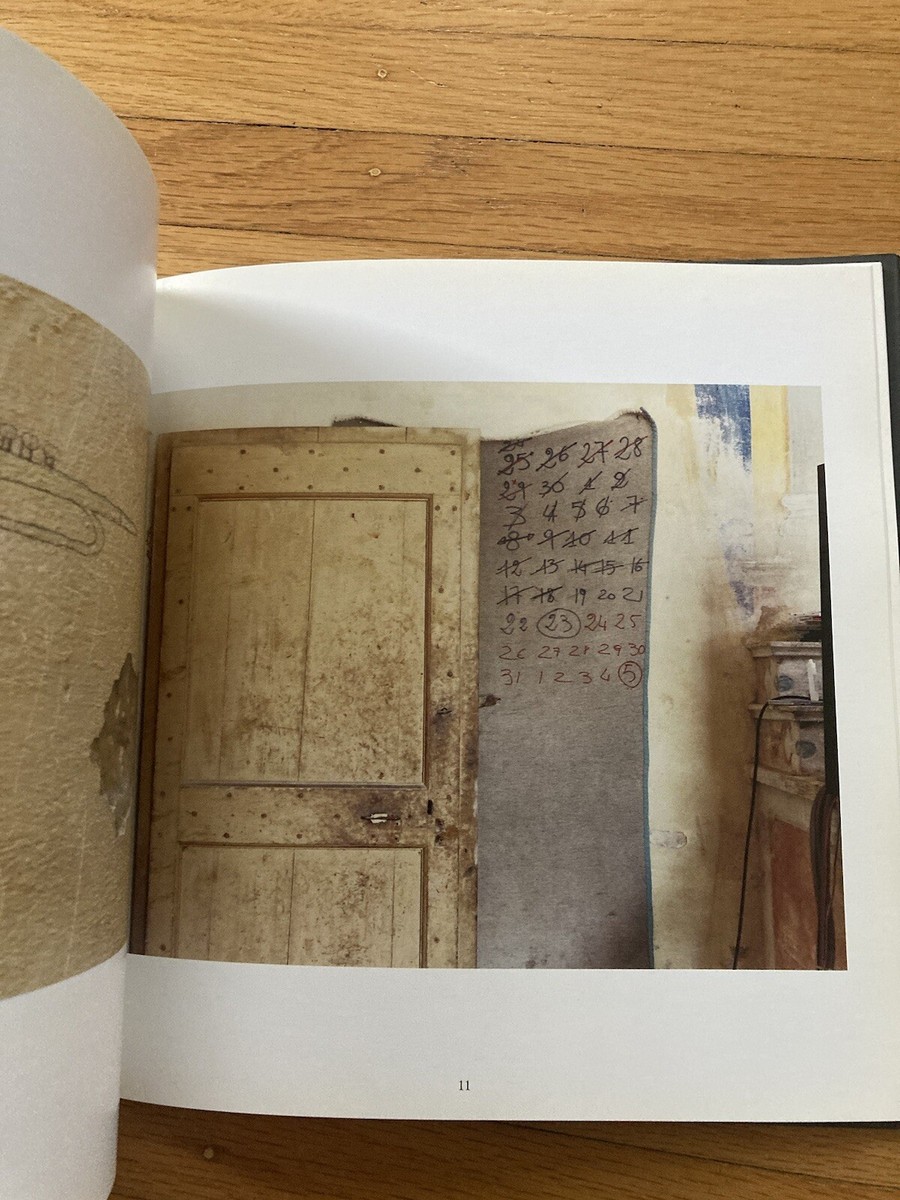 25 26 27 28
29 30 1 2
3 4 5 6 7
8 9 10 11
12 13 14 15 16
17 18 19 20 21
22 23 24 25
26 27 28 29 30
31 1 2 3 4 5
11